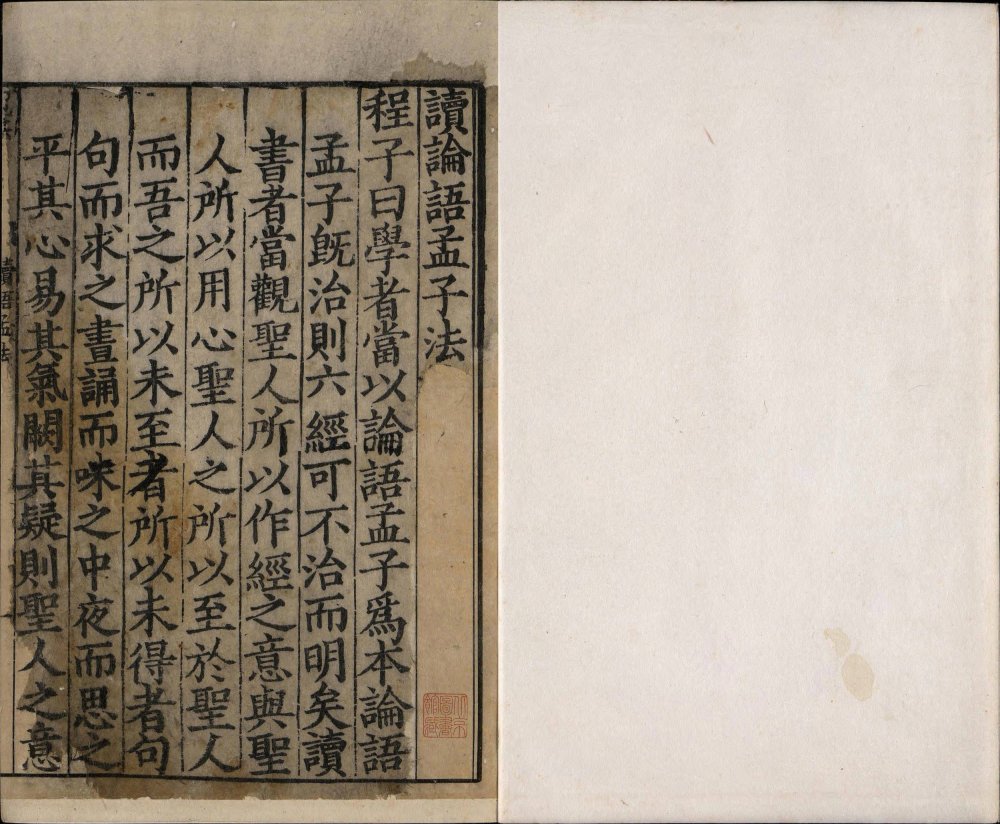 讀論語孟子法
程子曰學者當以論語孟子爲本論語
孟子旣治則六經可不治而明矣讀
書者當觀聖人所以作經之意與聖
人所以用心聖人之所以至於聖人
而吾之所以未至者所以未得者句
句而求之晝誦而味之中夜而思之
平其心易其氣闕其疑則聖人之意
讀語孟法